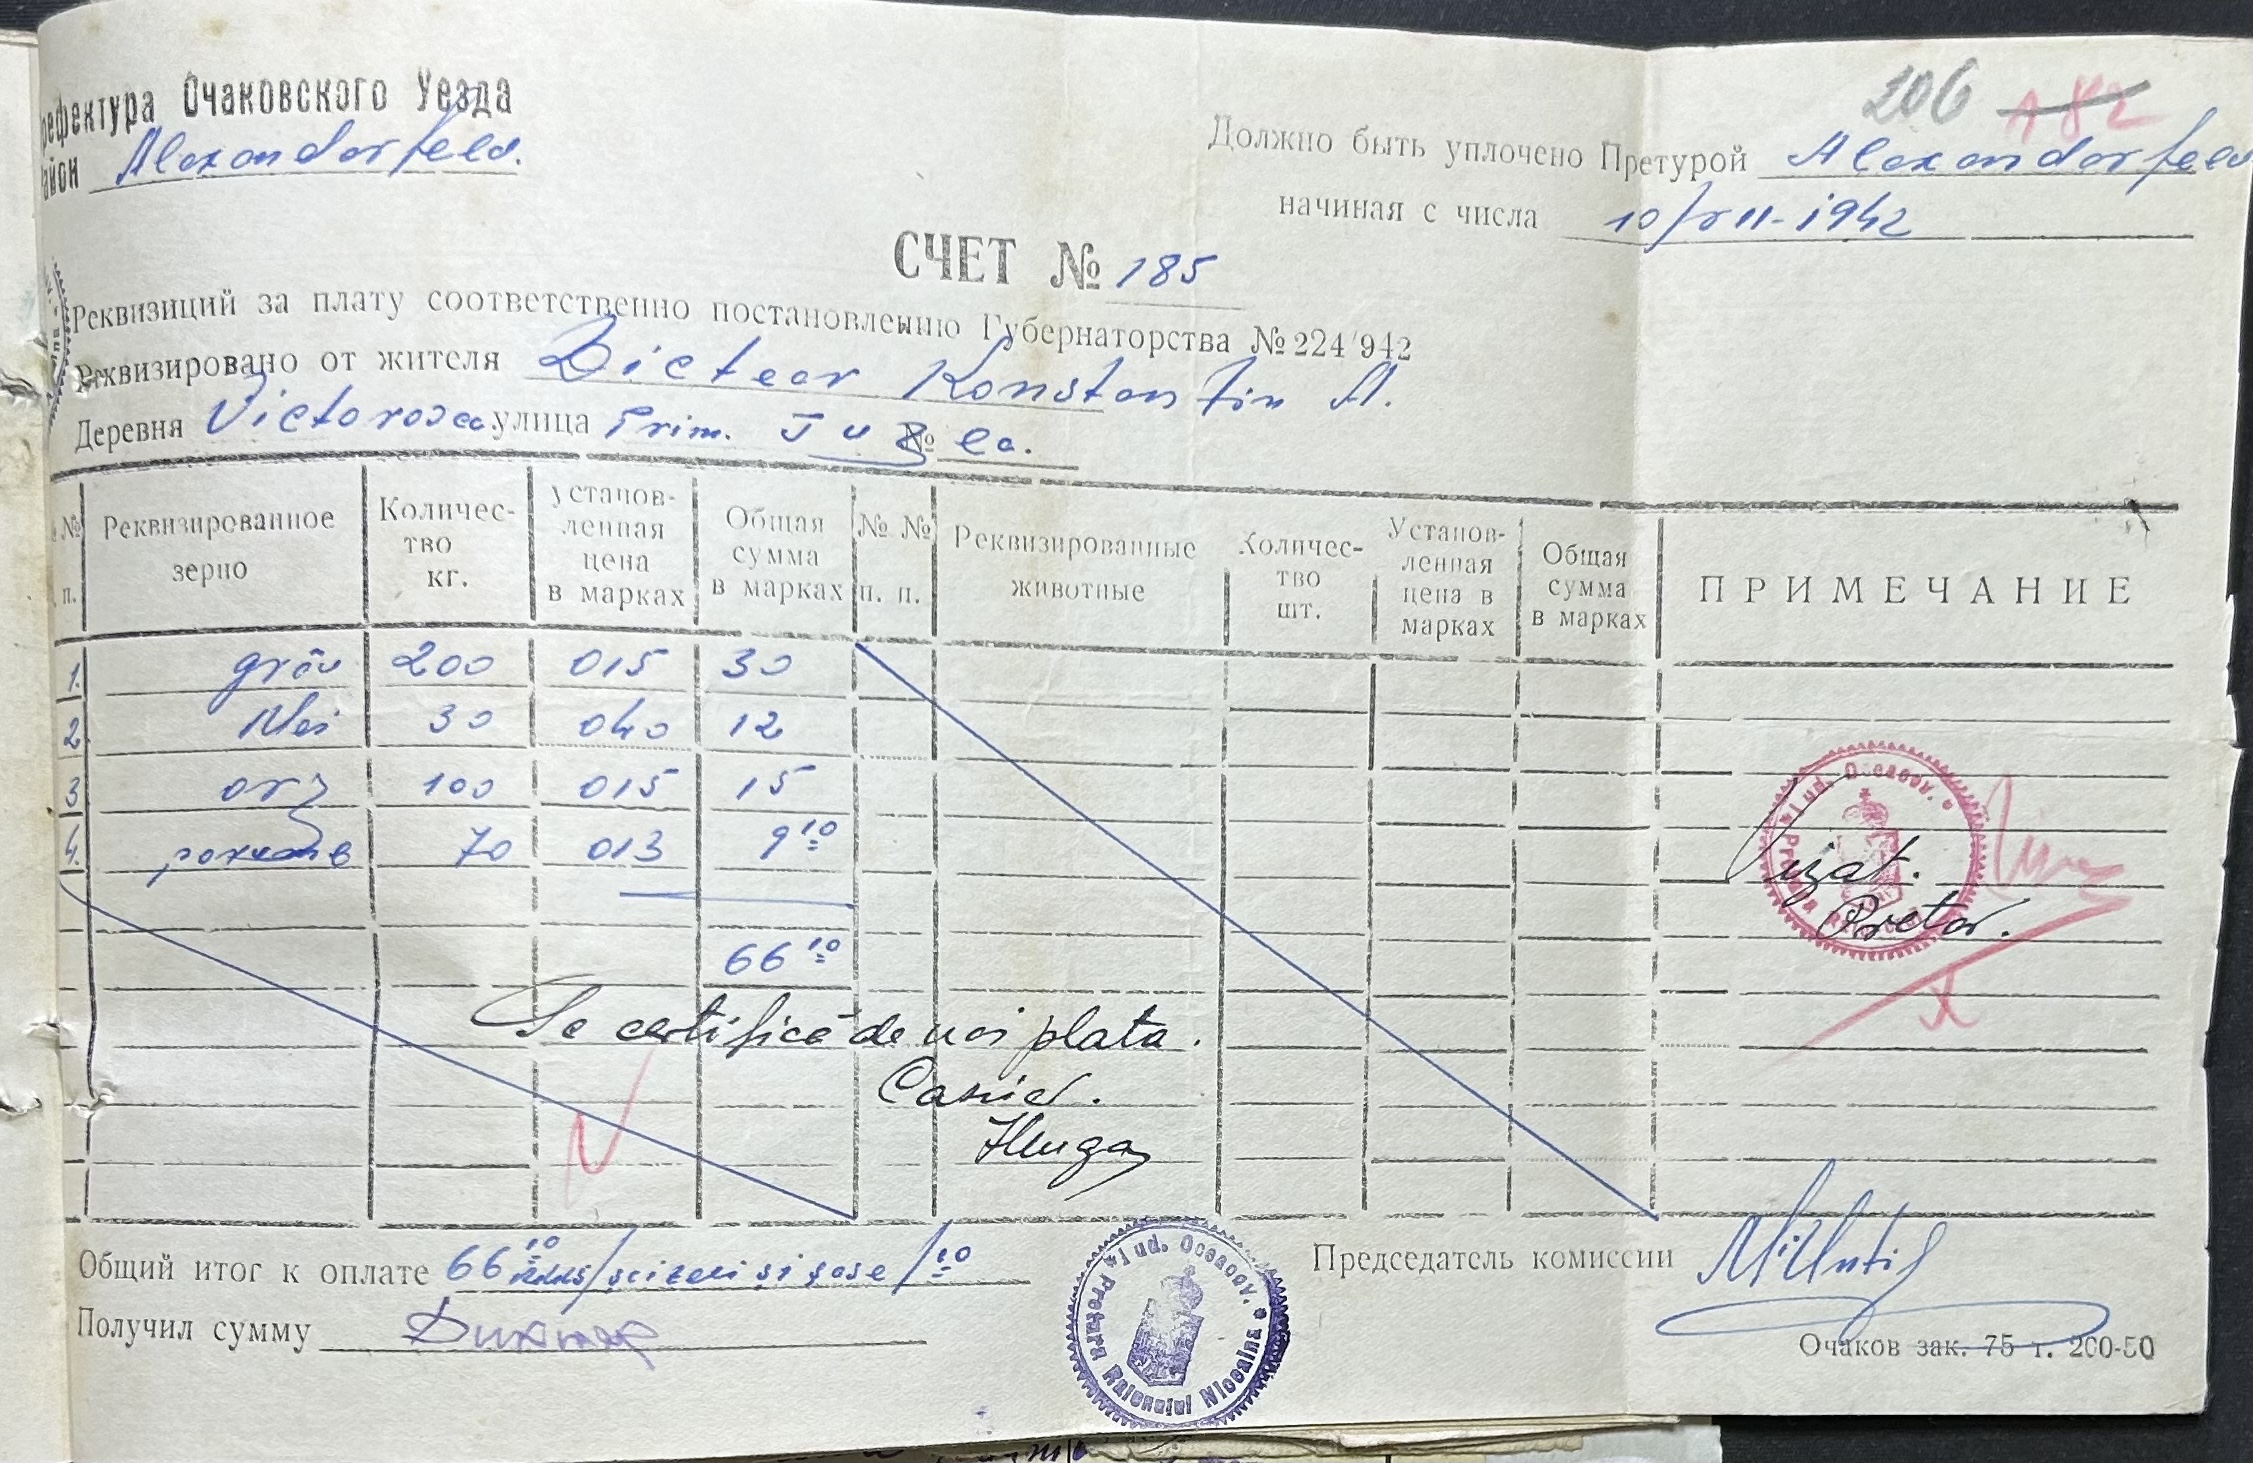 206 182
рефектура Очаковского Уезда
айон Alexandarfeld.
Должно быть уплочено Претурой Alexandarfeld
начиная с числа 10/VII-1942
СЧЕТ № 185
Реквизиций за плату соответственно постановлению Губернаторства № 224/942
Реквизировано от жителя Dictear Konstantin A.
Деревня Victorovca улица Prim. №
№ п. Реквизированное зерно Количес-тво кг. Установ-ленная цена в марках Общая сумма в марках № № п. п. Реквизированные животные Количес-тво шт. Установ-ленная цена в марках Общая сумма в марках ПРИМЕЧАНИЕ
1. grâu 200 015 30
2 Mei 30 040 12
3 orz 100 015 15
4. 70 013 9 10
66 10
Vizat.
Pretor.
Se certifică de noi plata.
Casier.
Общий итог к оплате 66 10 /șeizeci și șase/10
Получил сумму
Председатель комиссии
Jud. Oceacov. * Pretura Raionului
Jud. Oceacov. * Pretura Raionului
Очаков зак. 75 т. 200-50